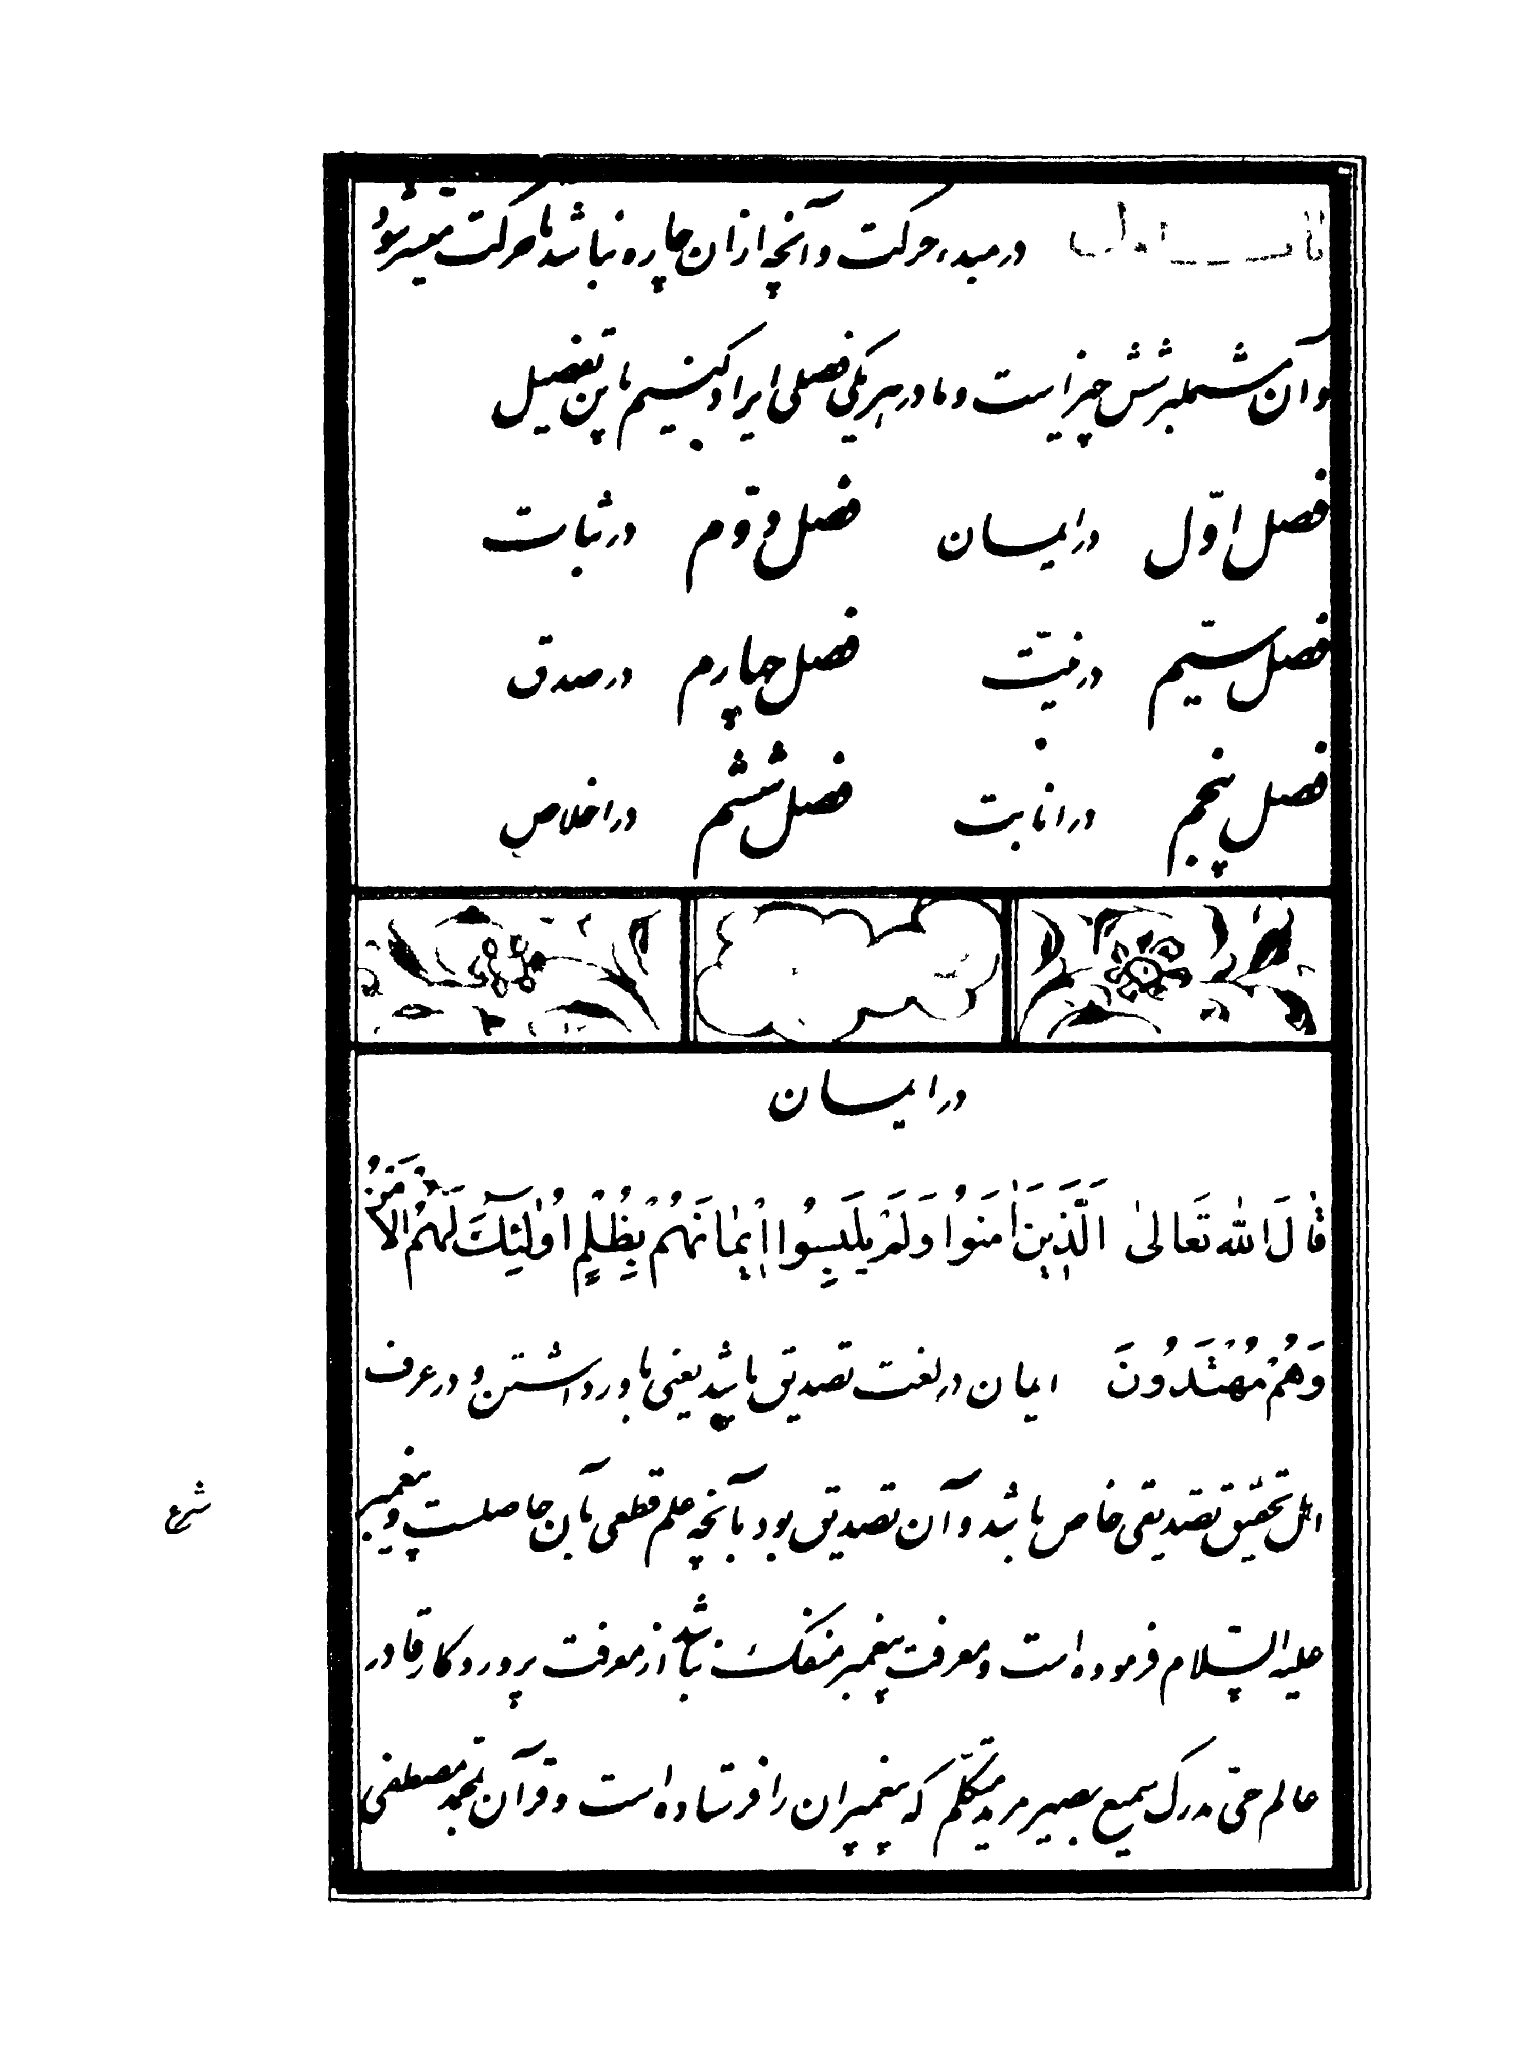 باب اول در مبدء حرکت و آنچه از ان چاره نباشد تا حرکت میسر شود
و آن مشتملبر شش چیز است و ما در هر یکی فصلی ایراد کنیم باین تفصیل
فصل اوّل در ایمان فصل دوّم در ثبات
فصل سیّم در نیّت فصل چهارم در صدق
فصل پنجم در انابت فصل ششم در اخلاص
در ایمان
قالَ اللهُ تَعالیٰ اَلَّذِینَ اٰمَنُوا وَلَمْ یَلْبِسُوا اِیْمٰانَهُمْ بِظُلْمٍ اُولٰئِكَ لَهُمُ الاَمْنُ
وَهُمْ مُهْتَدُونَ ایمان در لغت تصدیق باشد یعنی باور داشتن و در عرف
اهل تحقیق تصدیقی خاص باشد و آن تصدیق بود بآنچه علم قطعی بآن حاصلست و پیغمبر
علیه السّلام فرموده است و معرفت پیغمبر منفک نباشد از معرفت پروردکار قادر
عالم حیّ مدرک سمیع بصیر مرید متکلّم که پیغمبران را فرستاده است و قرآن بمحمد مصطفی
شرع